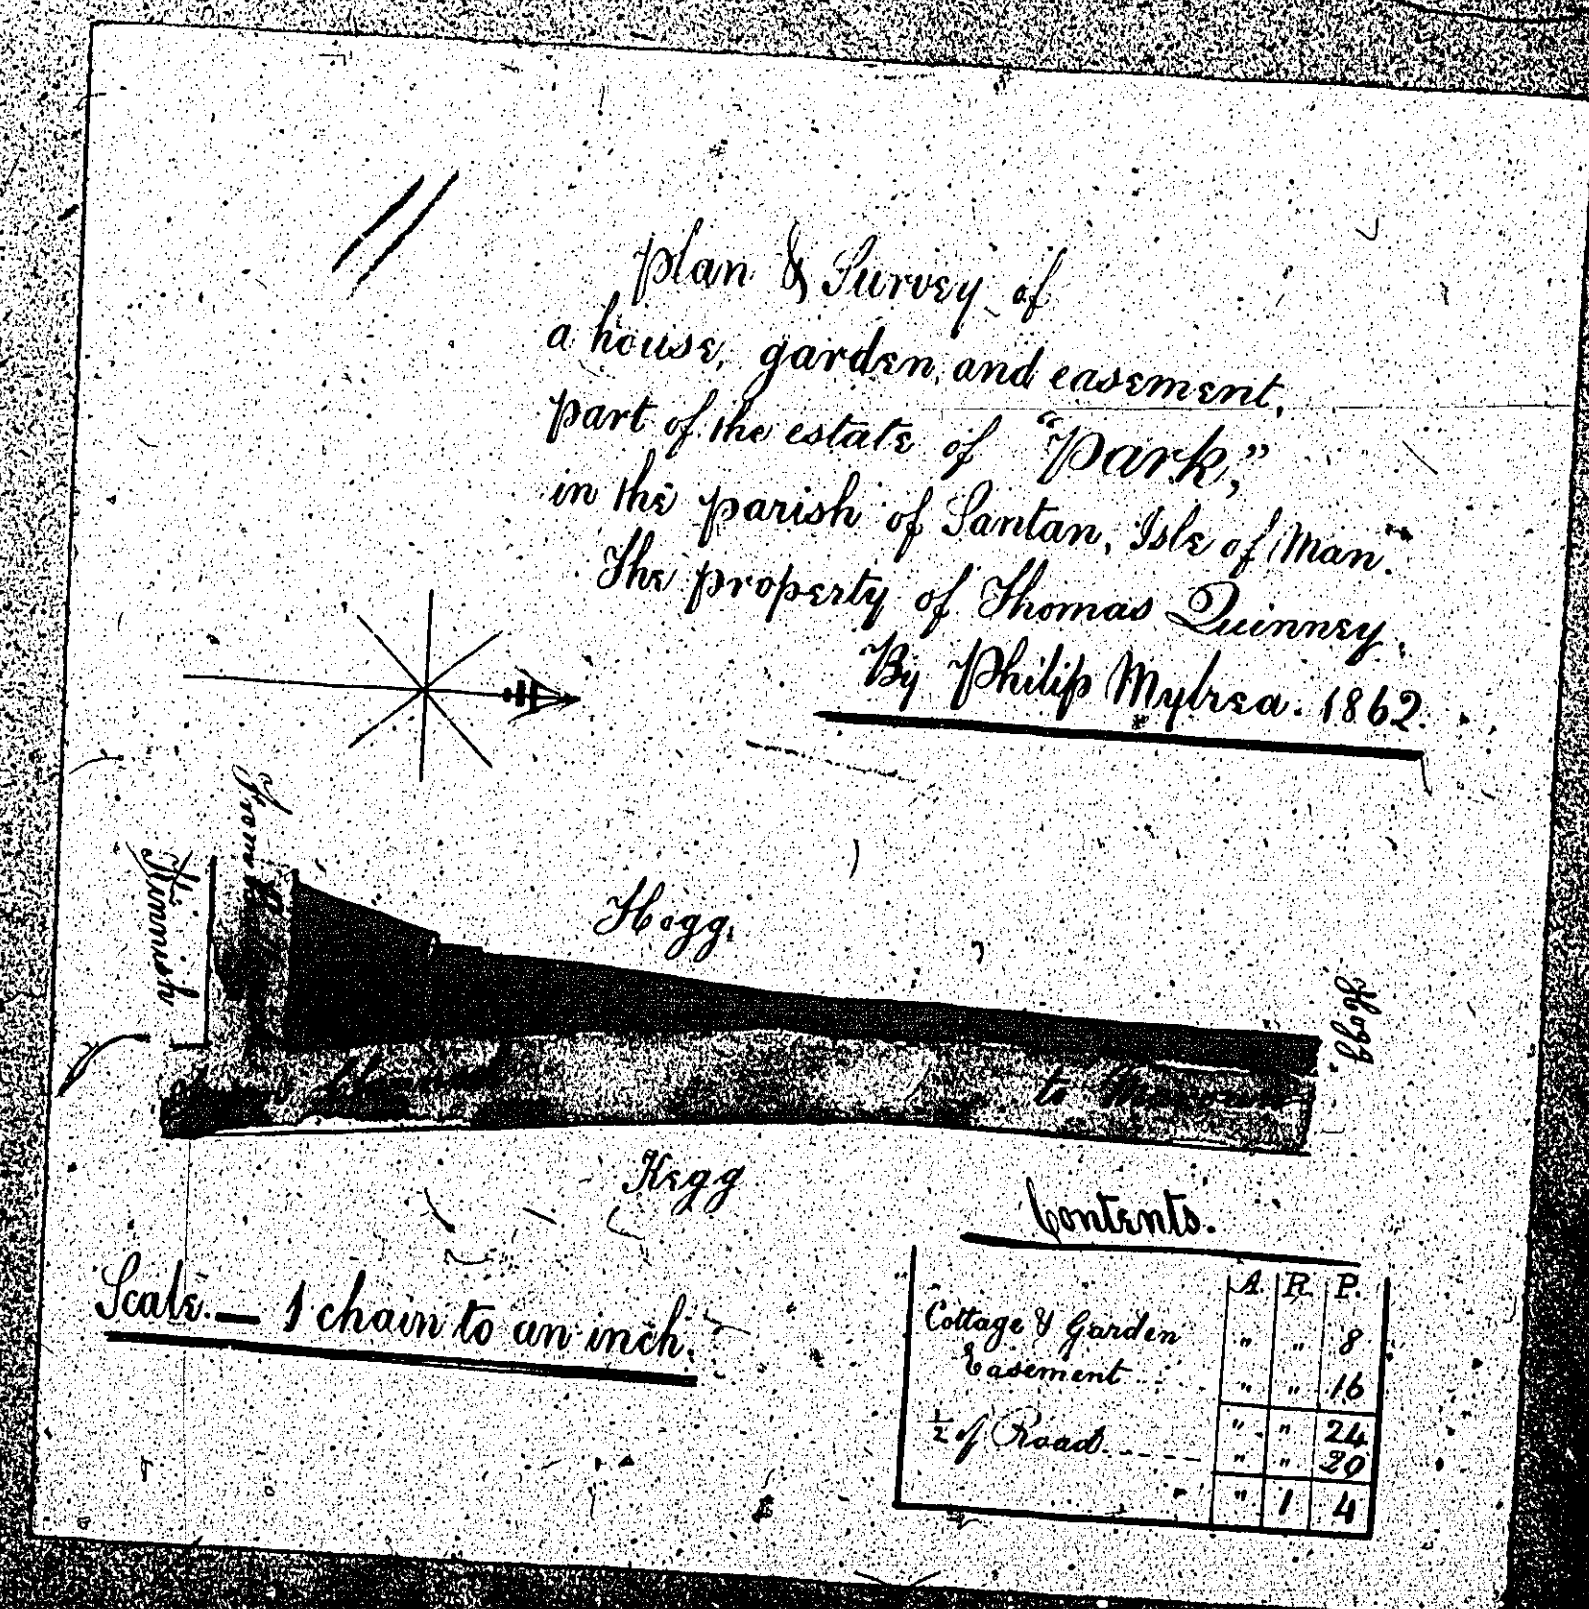 Plan & Survey of
a house, garden, and easement,
part of the estate of "Park,"
in the parish of Santan, Isle of Man.
The property of Thomas Quinney.
By Philip Mylrea. 1862.
Kinnish
Hogg.
Hogg
to
Kegg
Scale. — 1 chain to an inch.
Contents.
A. R. P.
Cottage & Garden " " 8
Easement " " 16
" " 24
½ of Road " " 20
" 1 4